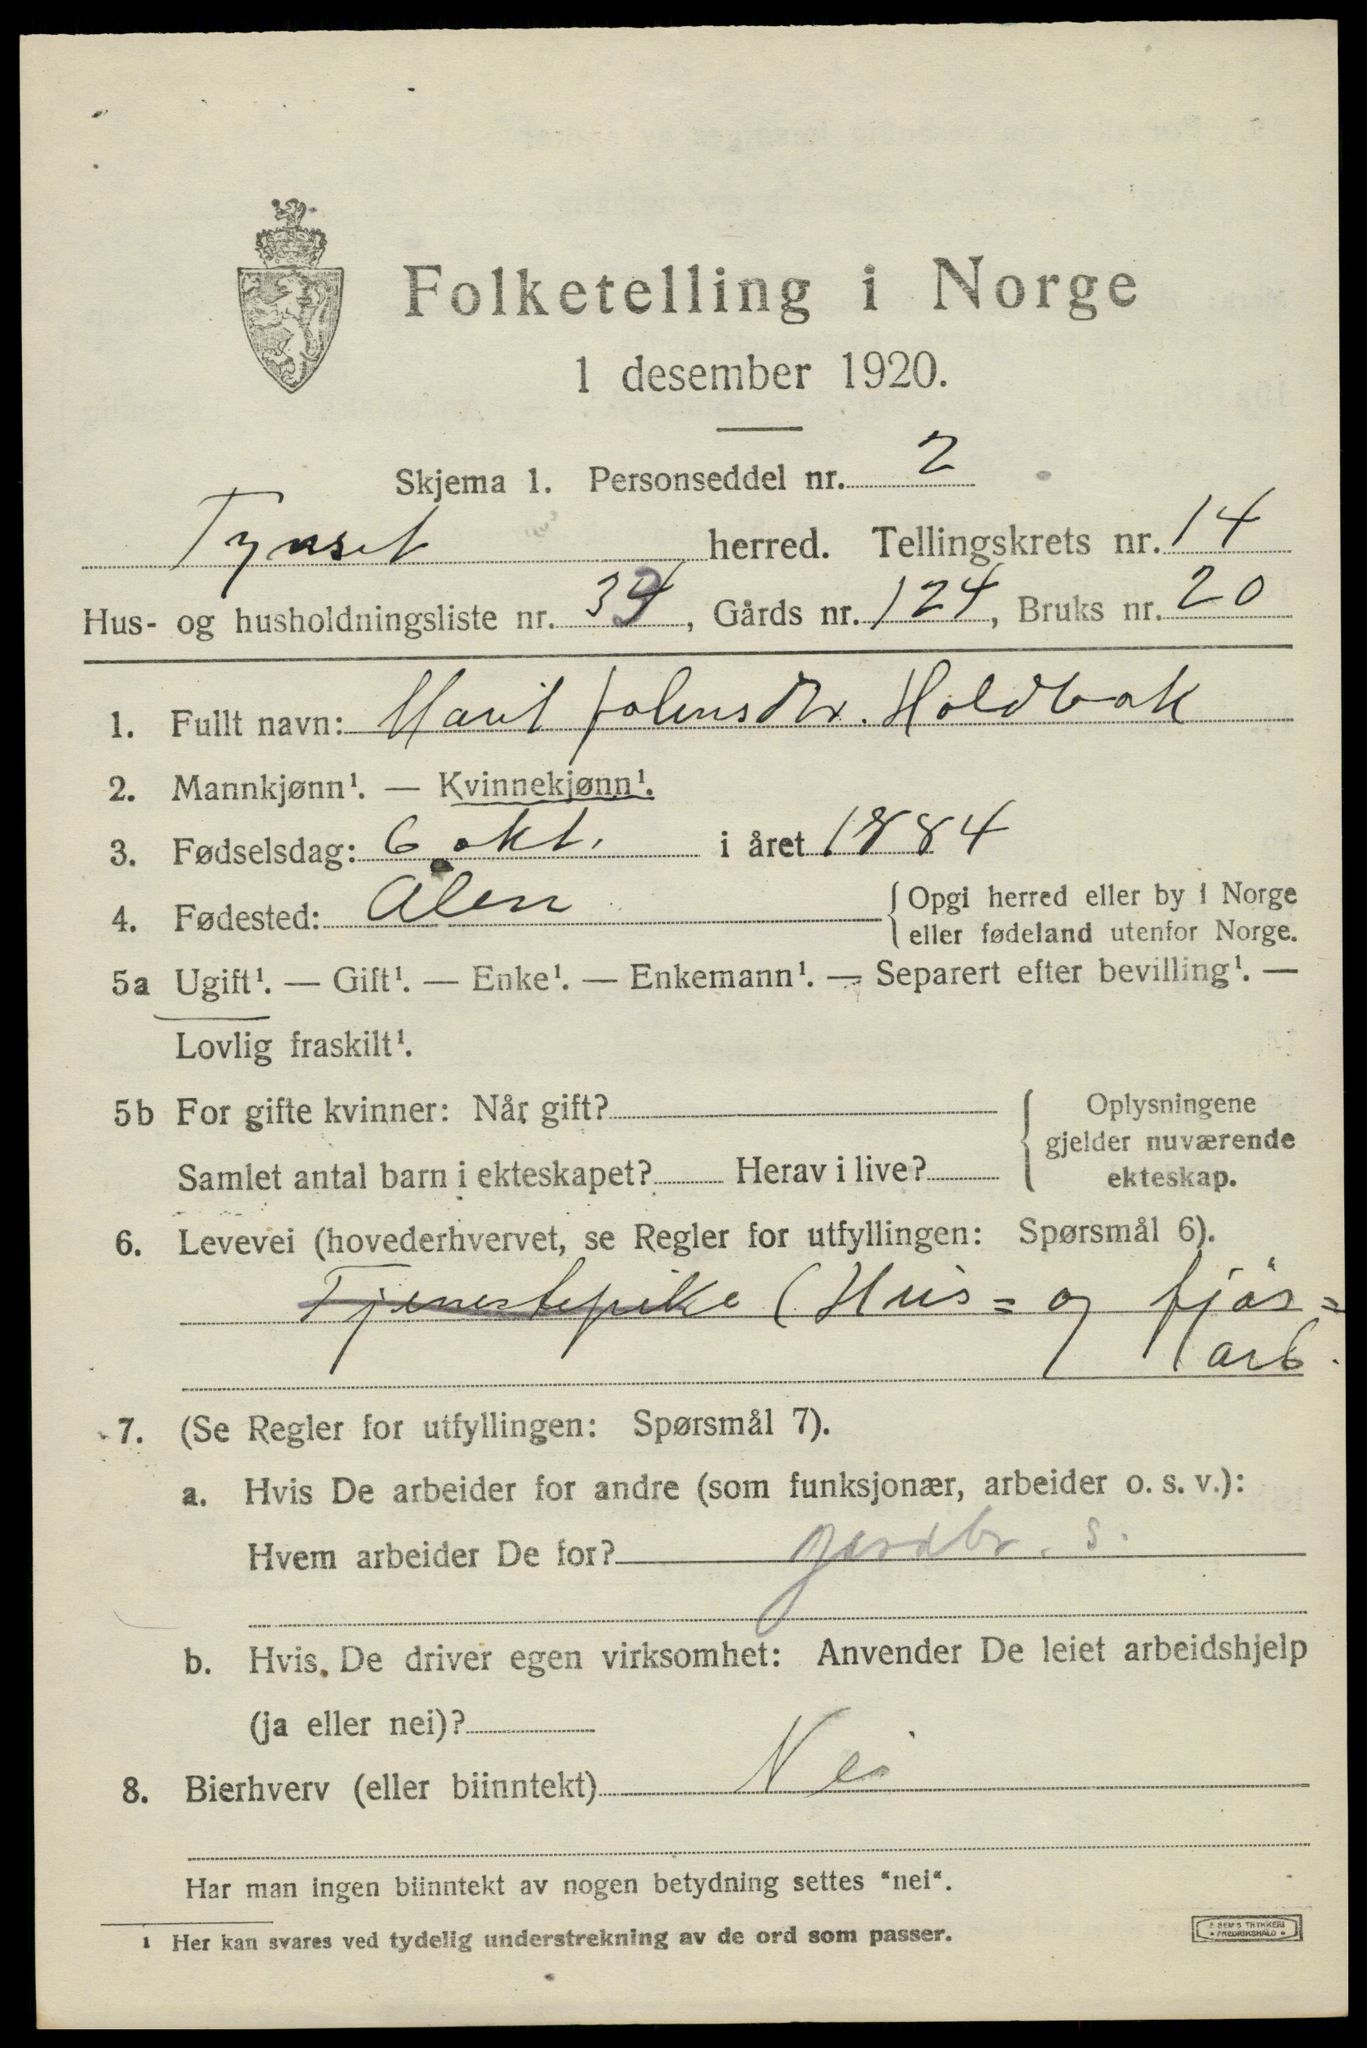 Folketelling i Norge
1 desember 1920.
Skjema 1. Personseddel nr. 2
Tynset herred. Tellingskrets nr. 14
Hus- og husholdningsliste nr. 34, Gårds nr. 124, Bruks nr. 20
1. Fullt navn: Marit Johnsdtr. Holdbak
2. Mannkjønn¹. — Kvinnekjønn¹.
3. Fødselsdag: 6 okt. i året 1884
4. Fødested: Ålen {Opgi herred eller by i Norge
eller fødeland utenfor Norge.
5a Ugift¹. — Gift¹. — Enke¹. — Enkemann¹. — Separert efter bevilling¹. —
Lovlig fraskilt¹.
5b For gifte kvinner: Når gift? Oplysningene
gjelder nuværende
Samlet antal barn i ekteskapet? Herav i live? ekteskap.
6. Levevei (hovederhvervet, se Regler for utfyllingen: Spørsmål 6).
Tjenestepike (Hus= og fjøs=
arb.
7. (Se Regler for utfyllingen: Spørsmål 7).
a. Hvis De arbeider for andre (som funksjonær, arbeider o. s. v.):
Hvem arbeider De for? gardbr. s.
b. Hvis De driver egen virksomhet: Anvender De leiet arbeidshjelp
(ja eller nei)?
8. Bierhverv (eller biinntekt) Nei
Har man ingen biinntekt av nogen betydning settes "nei".
¹ Her kan svares ved tydelig understrekning av de ord som passer.
E SEM'S TRYKKERI
FREDRIKSHALD